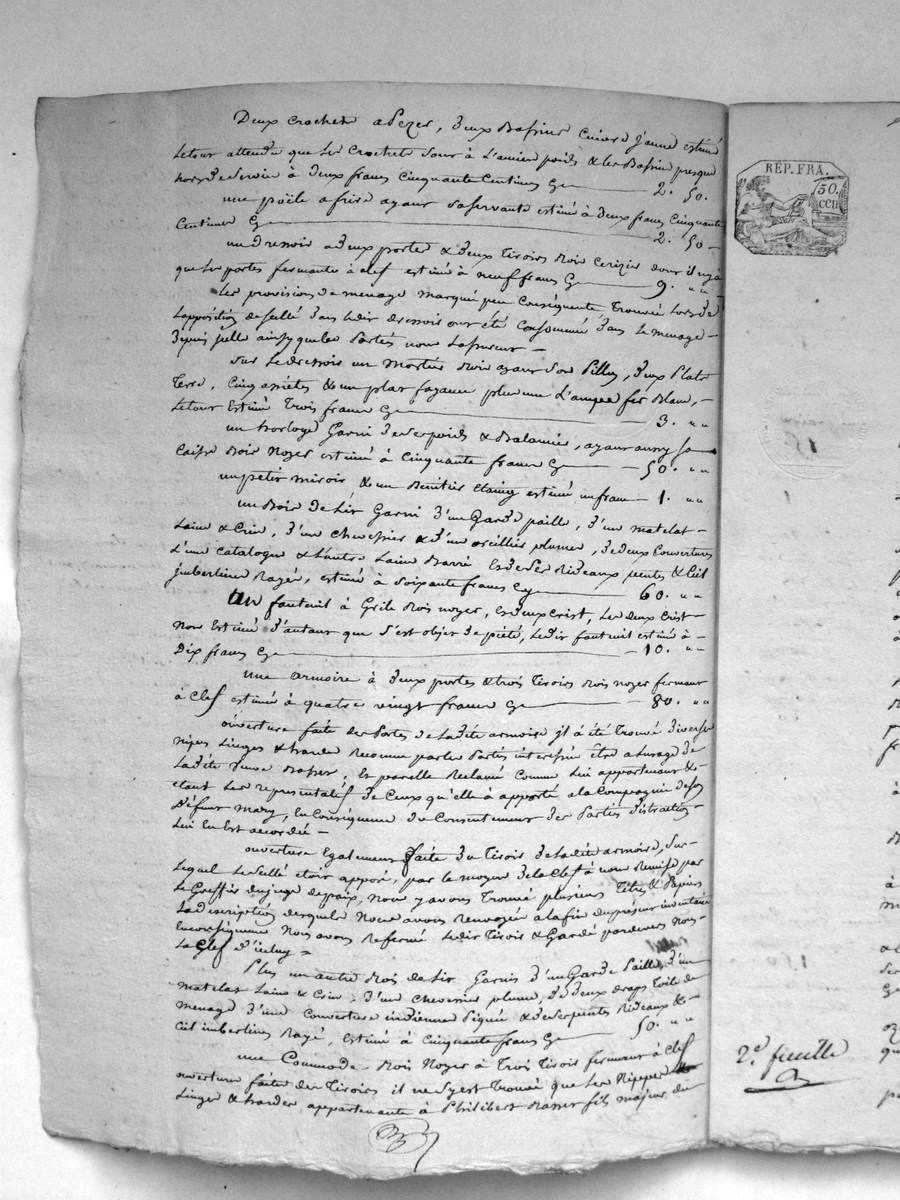 Deux crochets a Pezer, deux Bassins Cuivre Jaune estimé
Le tout attendu que Les Crochets sont à L'ancien poids & les Bassins presque
hors de service à deux francs Cinquante Centimes Cy 2. 50.
une poële a frire ayant sa servante estimé à deux francs Cinquante
Centimes Cy 2. 50
un Dressoir a deux portes & deux tiroirs Bois Cerizier dont il n'y a
que Les portes fermante à clef estimé à neuf francs Cy 9. " "
Les provisions de menage marqué peu Conséquente trouvée Lors de
L'apposition des scellé dans Le dit dressoir ont été Consommé dans Le menage
depuis jcelle ainsy que les Parties nous L'assurent
sur Le dressoir un mortier Bois ayant son Pillon, deux Plats
Terre, Cinq assiétes & un plat fayance plus une Lampe fer Blanc,
Le tout Estimé Trois francs Cy 3. " "
un horloge Garni de Ses poids & Balancier, ayant aussy sa
Caisse Bois Noyer estimé à Cinquante francs Cy 50. " "
un petit miroir & un Benitier étaing estimé un franc 1. " "
un Bois de Lit Garni d'un Garde paille, d'un matelat
Laine & Crin, d'un chevessier & d'un oreillier plumes, de deux Couvertures
L'une catalogne & L'autre Laine Barré Et de Ses Rideaux pentes & Ciel
jmberline Rayée, estimé à Soixante francs Cy 60. " "
Un fauteuil à Grile Bois noyer, Et deux Crist, Les deux Crist
Non Estimé d'autant que C'est objet de pieté, Le dit fauteuil estimé à
Dix francs Cy 10. " "
une armoire à deux portes & trois Tiroirs Bois noyer fermant
à Clef estimé à quatre vingt francs Cy 80. " "
ouverture faite des Portes de La dite armoire jl à été Trouvé diverses
nipes Linges & hardes Reconnu par les Parties interessées être a L'usage de
La dite veuve Basset, Et par elle Reclamé Comme Lui appartenant &
étant Les representatif de Ceux qu'elle à apporté a la Compagnie de son
Défunt mary, En Conséquence du Consentement des Parties distraction
Lui En Est accordée
ouverture Egalement faite du Tiroir de La dite armoire, Sur
Lequel Le Scellé étoit apposé, par le moyen de la Clef à nous Remise par
Le Greffier du juge de paix, nous y avons Trouvé plusieurs Titres & Papiers
La description desquels Nous avons Renvoyée a la fin du présent inventaire
En conséquence Nous avons Refermé Le dit Tiroir & Gardé pardevers Nous
La Clef d'icelui
Plus un autre Bois de Lit Garnis d'un Garde Paille, d'un
matelas Laine & Crin, d'un chevessier plume, de deux draps Toile de
menage d'une Couverture indienne Piquée & de Ses pentes Rideaux &
Ciel imberlines Rayé, estimé à Cinquante francs Cy 50. " "
une Commode Bois Noyer à Trois Tiroir fermant à Clef
ouverture faite des Tiroirs il ne S'y est Trouvé que Les Nippes
Linges & hardes appartenante à Philibert Basset fils majeur du
RÉP. FRA.
50.
CEN
2.e feuille